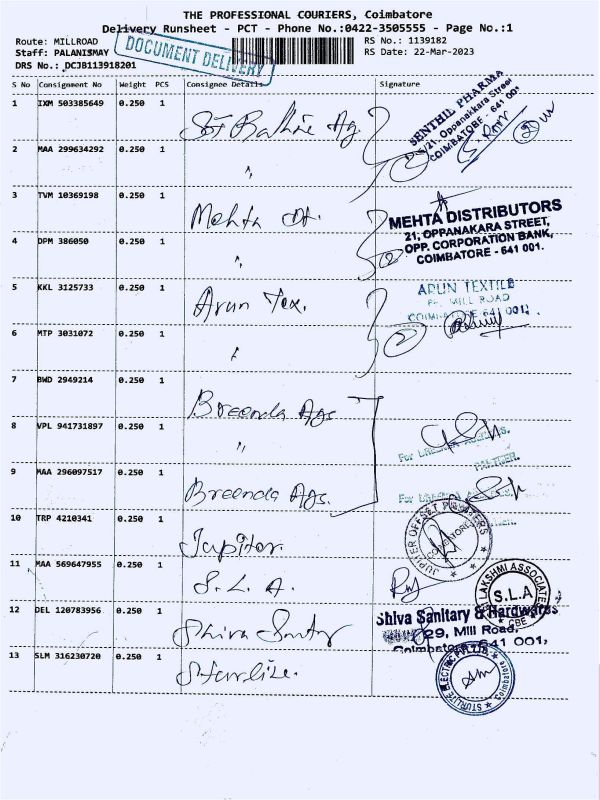 THE PROFESSIONAL COURIERS, Coimbatore
Delivery Runsheet - PCT - Phone No.:0422-3505555 - Page No.:1
Route: MILLROAD
RS No.: 1139182
Staff: PALANISMAY
RS Date: 22-Mar-2023
DRS No.: DCJB113918201
DOCUMENT DELIVERY
S No Consignment No Weight PCS Consignee Details Signature
1 IXM 503385649 0.250 1
SENTHIL PHARMA
Oppanakkara Street
COIMBATORE - 641 001
2 MAA 299634292 0.250 1 "
3 TVM 10369198 0.250 1 Mehta Dt.
MEHTA DISTRIBUTORS
21, OPPANAKARA STREET,
OPP. CORPORATION BANK,
COIMBATORE - 641 001.
4 DPM 386050 0.250 1 " 2
5 KKL 3125733 0.250 1 Arun Tex.
ARUN TEXTILE
MILL ROAD
641 001.
6 MTP 3031072 0.250 1 " 2
7 BWD 2949214 0.250 1 Breenda Ags
8 VPL 941731897 0.250 1 "
For
9 MAA 296097517 0.250 1 Breenda Ags.
For
10 TRP 4210341 0.250 1 Jupiter.
JUPITER OFFSET PRINTERS
COIMBATORE
11 MAA 569647955 0.250 1 S. L. A.
LAKSHMI ASSOCIATES
S.L.A
CBE
12 DEL 120783956 0.250 1 Shiva Sanitry
Shiva Sanitary & Hardwares
29, Mill Road,
Coimbatore 641 001,
13 SLM 316230720 0.250 1 Sturlite.
STURLITE ELECTRIC PVT LTD
Coimbatore